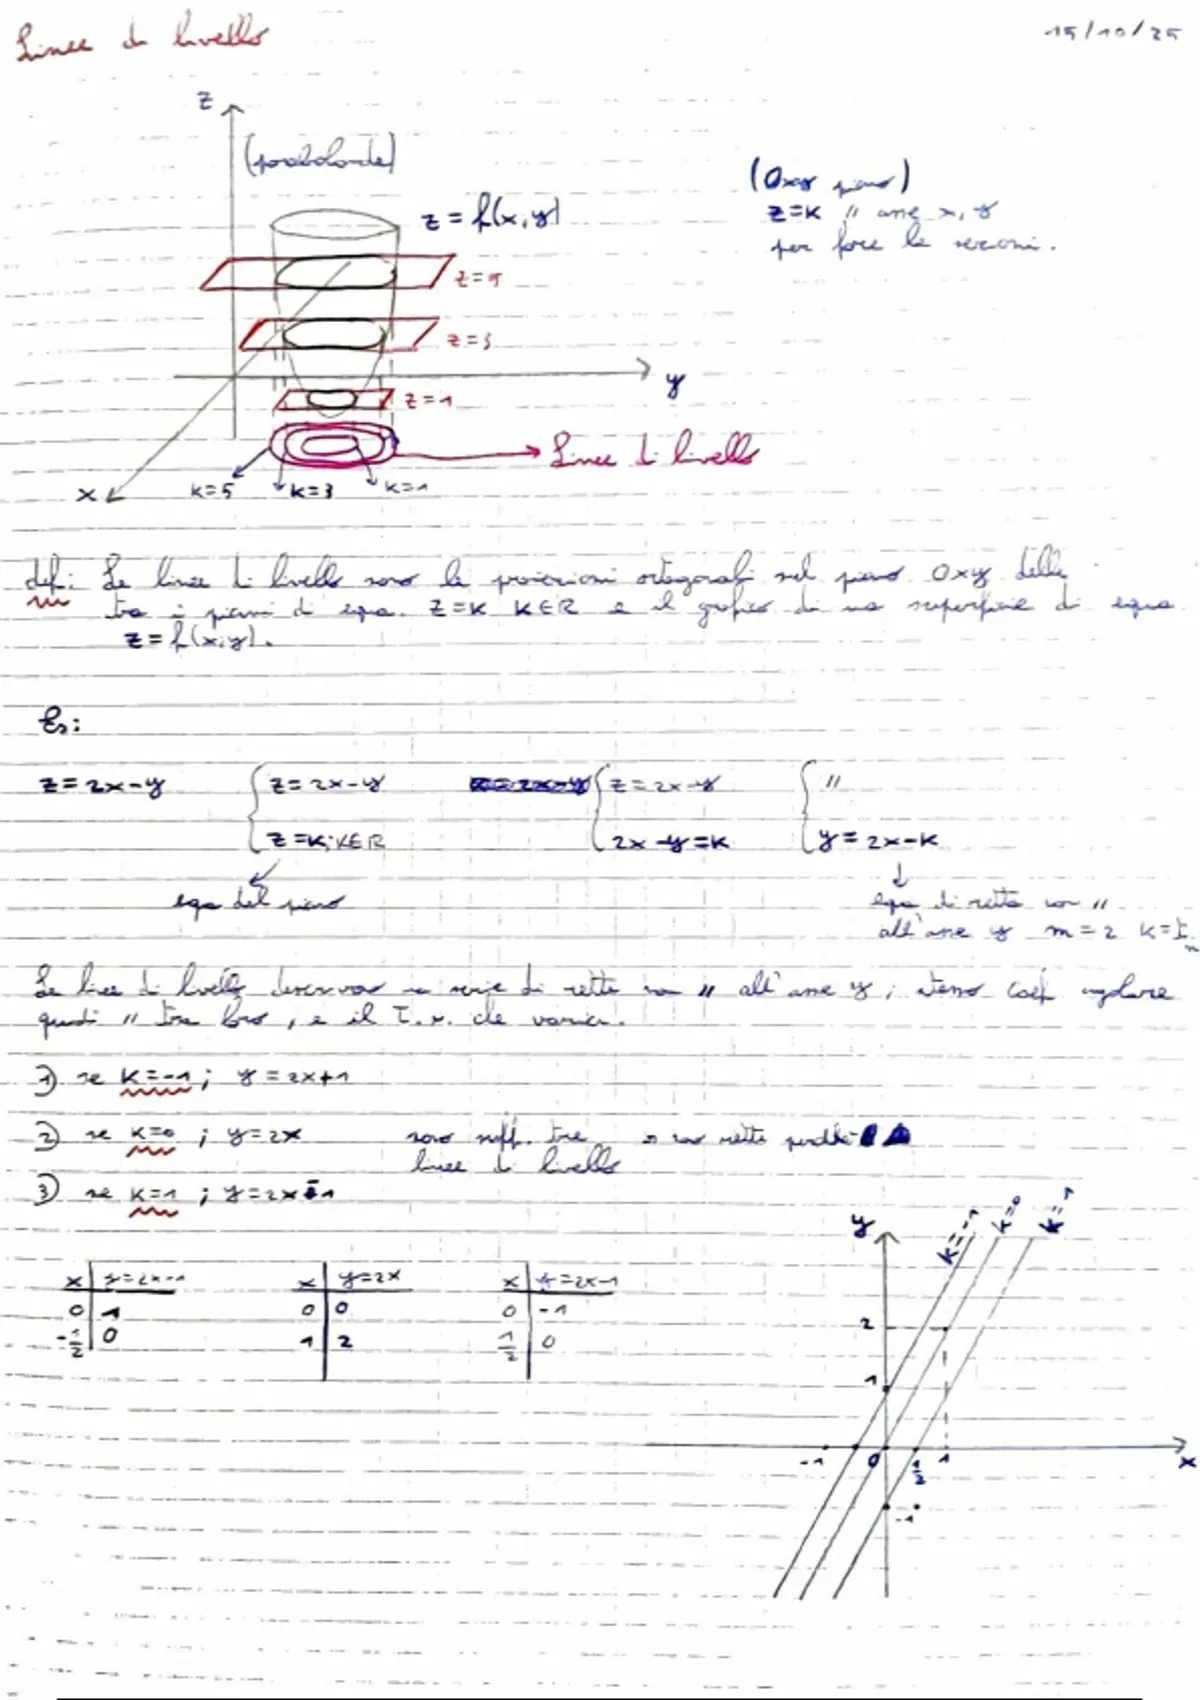 Linee di livello 15/10/25
z
(paraboloide)
z = f(x,y)
(Oxy piano)
z=k // assi x, y
per fare le sezioni.
z=5
z=3
y
z=1
Linee di livello
x
k=5 k=3 k=1
def: Le linee di livello sono le proiezioni ortogonali nel piano Oxy delle
tra i piani di equa. z=k k∈R e il grafico di una superficie di equa
z=f(x,y).
Es:
z=2x-y { z=2x-y { z=2x-y { //
z=k; k∈R 2x-y=k y=2x-k
equa del piano
equa di retta non //
all'asse y m=2 k=
Le linee di livello descrivono una serie di rette non // all'asse y; stesso coef angolare
quindi // tra loro, e il T.N. che varia.
1) se k=-1; y=2x+1
2) se k=0; y=2x sono suff. tre
linee di livello
3) se k=1; y=2x-1
x y=2x x y=2x-1
0 1 0 0 0 -1
-1/2 0 1 2 1/2 0
y
k=-1 k=0 k=1
2
1
-1 0 1/2 1 x
-1